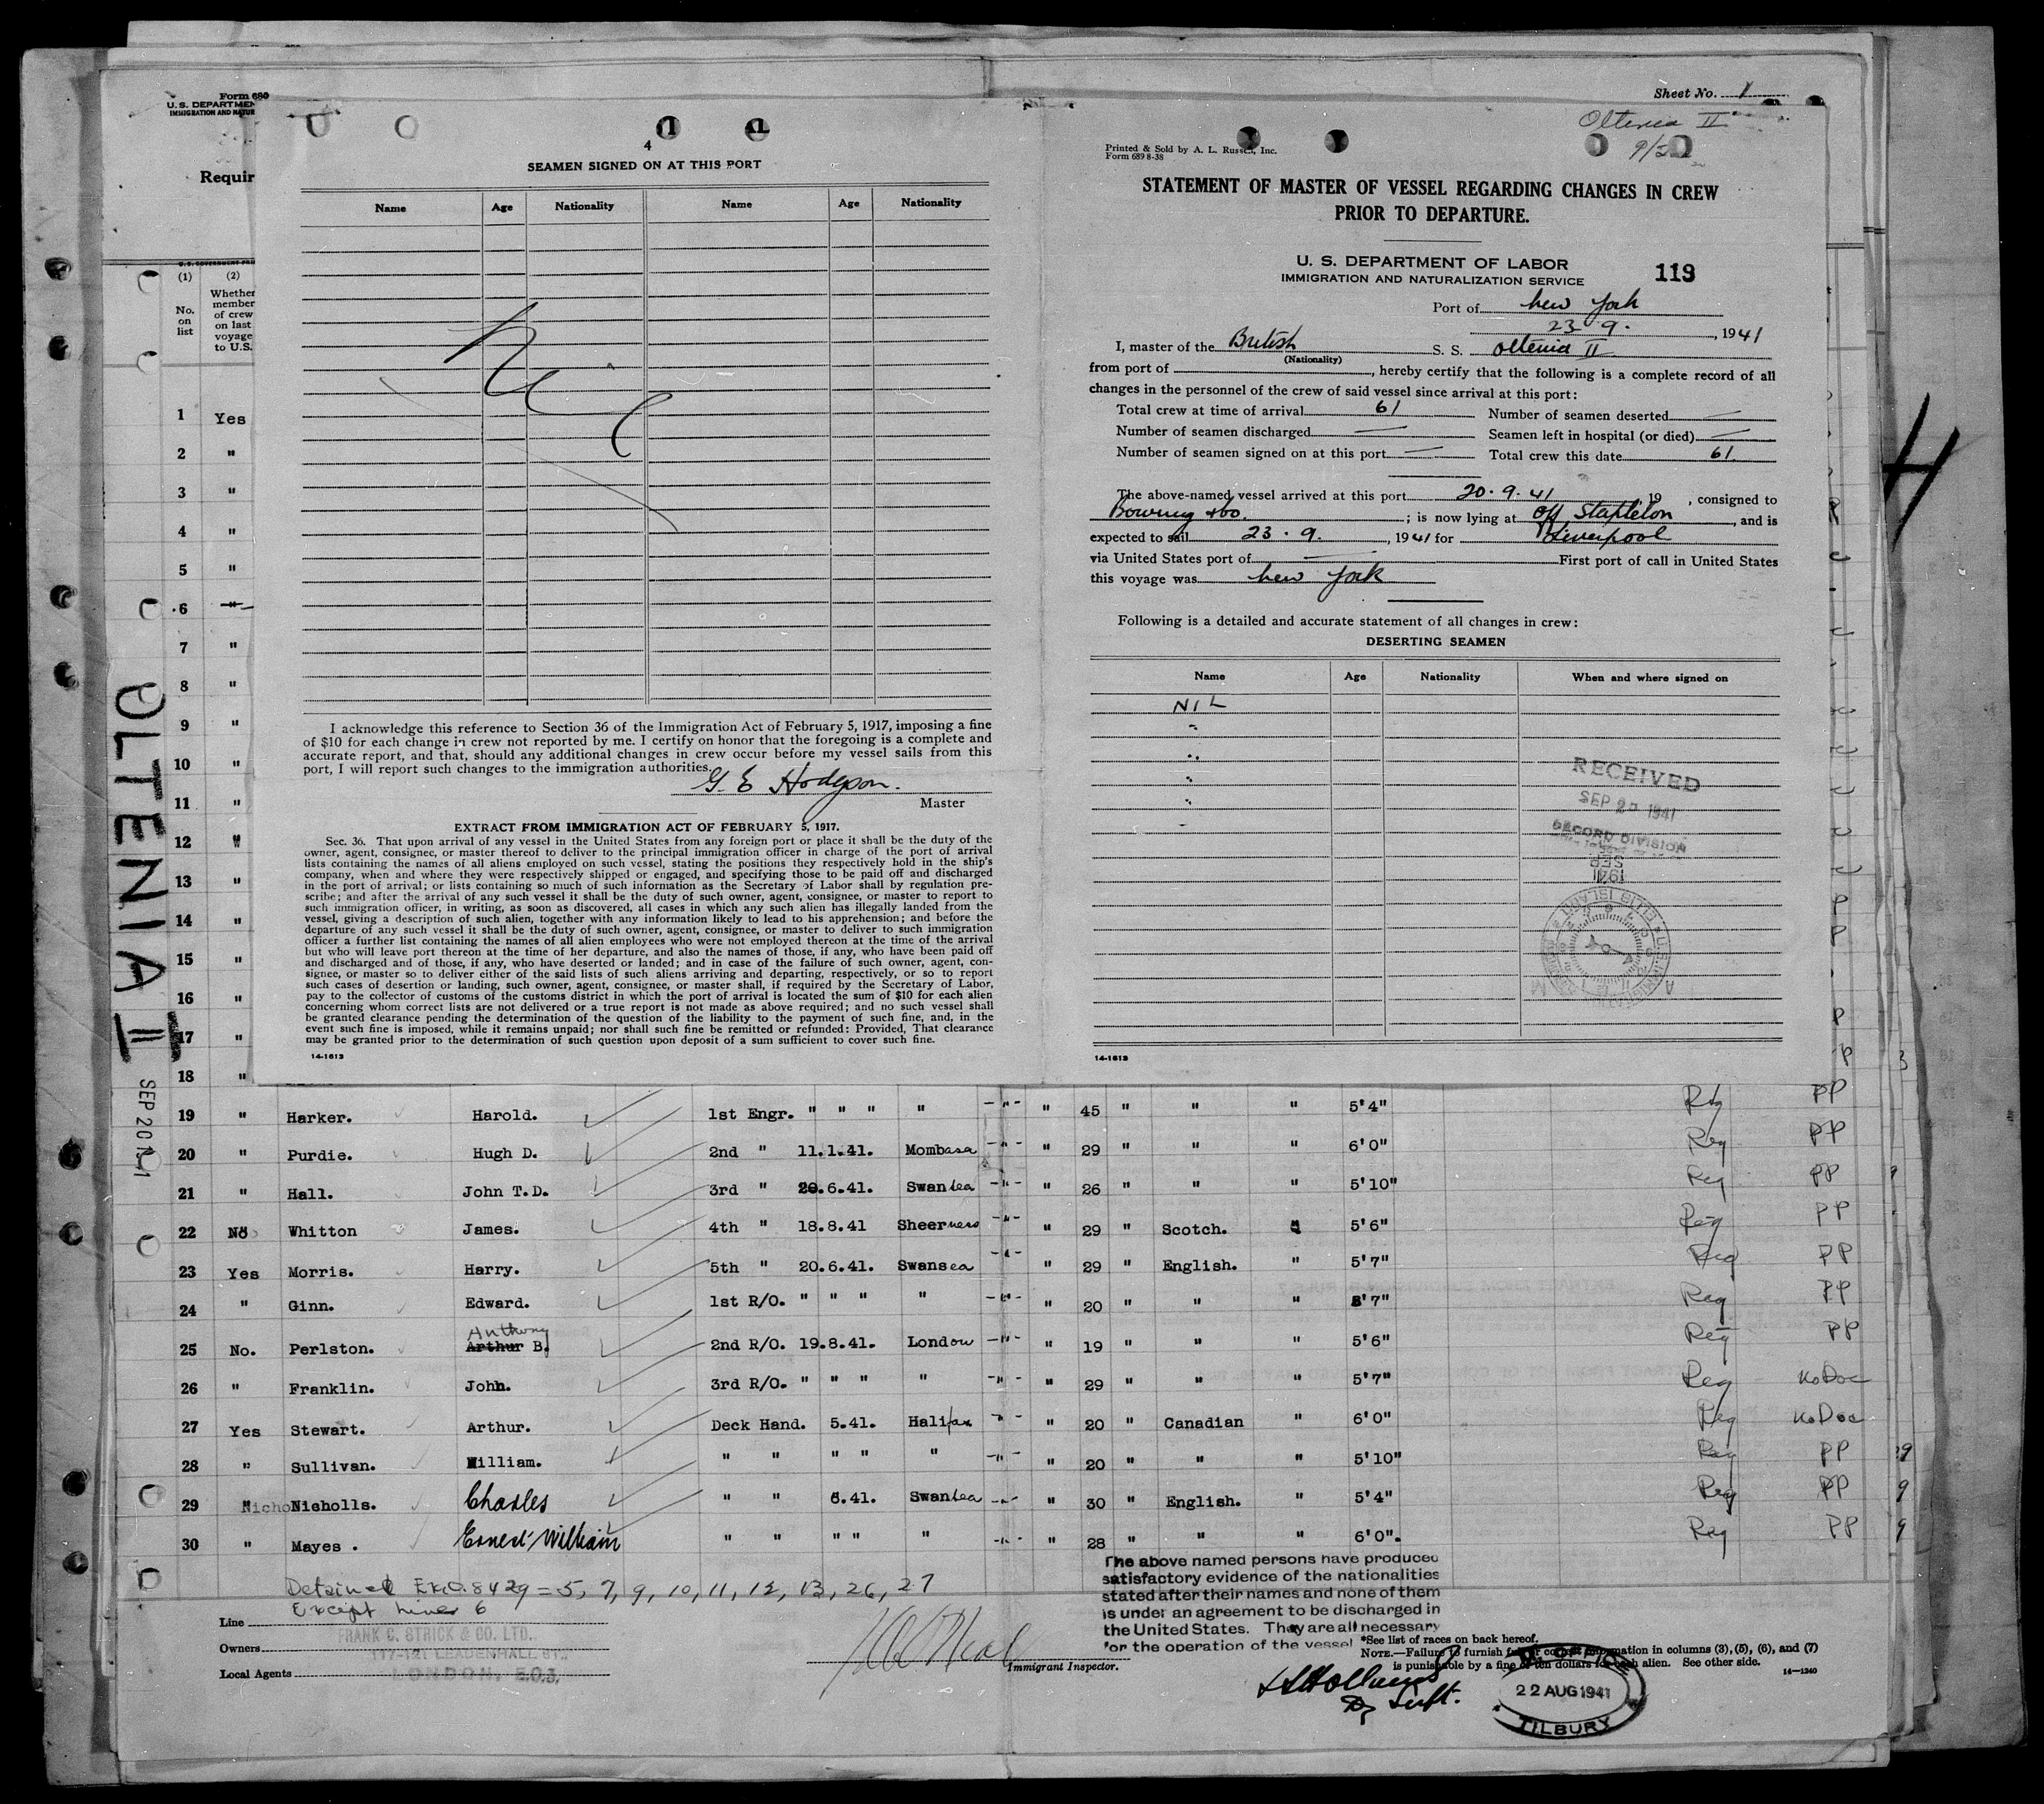 Form 680
U. S. DEPARTMEN
IMMIGRATION AND NATUR
Requir
Sheet No. 1
(1) (2)
No. on list
Whether member of crew on last voyage to U.S.
1 Yes
2 "
3 "
4 "
5 "
6 "
7 "
8 "
9 "
10 "
11 "
12 "
13 "
14 "
15 "
16 "
17 "
18 "
OLTENIA II
SEP 20 1941
4
SEAMEN SIGNED ON AT THIS PORT
Name Age Nationality Name Age Nationality
Nil
I acknowledge this reference to Section 36 of the Immigration Act of February 5, 1917, imposing a fine
of $10 for each change in crew not reported by me. I certify on honor that the foregoing is a complete and
accurate report, and that, should any additional changes in crew occur before my vessel sails from this
port, I will report such changes to the immigration authorities.
G. E Hodgson.
Master
EXTRACT FROM IMMIGRATION ACT OF FEBRUARY 5, 1917.
Sec. 36. That upon arrival of any vessel in the United States from any foreign port or place it shall be the duty of the
owner, agent, consignee, or master thereof to deliver to the principal immigration officer in charge of the port of arrival
lists containing the names of all aliens employed on such vessel, stating the positions they respectively hold in the ship's
company, when and where they were respectively shipped or engaged, and specifying those to be paid off and discharged
in the port of arrival; or lists containing so much of such information as the Secretary of Labor shall by regulation pre-
scribe; and after the arrival of any such vessel it shall be the duty of such owner, agent, consignee, or master to report to
such immigration officer, in writing, as soon as discovered, all cases in which any such alien has illegally landed from the
vessel, giving a description of such alien, together with any information likely to lead to his apprehension; and before the
departure of any such vessel it shall be the duty of such owner, agent, consignee, or master to deliver to such immigration
officer a further list containing the names of all alien employees who were not employed thereon at the time of the arrival
but who will leave port thereon at the time of her departure, and also the names of those, if any, who have been paid off
and discharged and of those, if any, who have deserted or landed; and in case of the failure of such owner, agent, con-
signee, or master so to deliver either of the said lists of such aliens arriving and departing, respectively, or so to report
such cases of desertion or landing, such owner, agent, consignee, or master shall, if required by the Secretary of Labor,
pay to the collector of customs of the customs district in which the port of arrival is located the sum of $10 for each alien
concerning whom correct lists are not delivered or a true report is not made as above required; and no such vessel shall
be granted clearance pending the determination of the question of the liability to the payment of such fine, and, in the
event such fine is imposed, while it remains unpaid; nor shall such fine be remitted or refunded: Provided, That clearance
may be granted prior to the determination of such question upon deposit of a sum sufficient to cover such fine.
14-1613
Oltenia II
Printed & Sold by A. L. Russell, Inc.
Form 689 8-38
STATEMENT OF MASTER OF VESSEL REGARDING CHANGES IN CREW
PRIOR TO DEPARTURE.
U. S. DEPARTMENT OF LABOR
IMMIGRATION AND NATURALIZATION SERVICE
119
Port of New York
23 9. , 1941
I, master of the British S. S. Oltenia II
(Nationality)
from port of , hereby certify that the following is a complete record of all
changes in the personnel of the crew of said vessel since arrival at this port:
Total crew at time of arrival 61 Number of seamen deserted —
Number of seamen discharged — Seamen left in hospital (or died) —
Number of seamen signed on at this port — Total crew this date 61.
The above-named vessel arrived at this port 20.9.41 , 19 , consigned to
Bowring & Co. ; is now lying at Off Stapleton , and is
expected to sail 23.9. , 1941 for Liverpool
via United States port of — First port of call in United States
this voyage was New York
Following is a detailed and accurate statement of all changes in crew:
DESERTING SEAMEN
Name Age Nationality When and where signed on
NIL
RECEIVED
SEP 1941
RECORD DIVISION
14-1613
H
19 " Harker. Harold. 1st Engr. " " " " -"- " 45 " " " 5'4" Reg PP
20 " Purdie. Hugh D. 2nd " 11.1.41. Mombasa -"- " 29 " " " 6'0" Reg PP
21 " Hall. John T.D. 3rd " 20.6.41. Swansea -"- " 26 " " " 5'10" Reg PP
22 No Whitton James. 4th " 18.8.41 Sheerness -"- " 29 " Scotch. " 5'6" Reg PP
23 Yes Morris. Harry. 5th " 20.6.41. Swansea -"- " 29 " English. " 5'7" Reg PP
24 " Ginn. Edward. 1st R/O. " " " " -"- " 20 " " " 5'7" Reg PP
Anthony
25 No. Perlston. Arthur B. 2nd R/O. 19.8.41. London -"- " 19 " " " 5'6" Reg PP
26 " Franklin. John. 3rd R/O. " " " " -"- " 29 " " " 5'7" Reg No Doc
27 Yes Stewart. Arthur. Deck Hand. 5.41. Halifax -"- " 20 " Canadian " 6'0" Reg No Doc
28 " Sullivan. William. " " " " " -"- " 20 " " " 5'10" Reg PP
29 " Nicholls. Charles " " 6.41. Swansea -"- " 30 " English. " 5'4" Reg PP
30 " Mayes. Ernest William " " " " " -"- " 28 " " " 6'0". Reg PP
Detained = 5, 7, 9, 10, 11, 12, 13, 26, 27
Except Lines 6
Line
Owners FRANK C. STRICK & CO. LTD.,
117-121 LEADENHALL ST.,
Local Agents LONDON, E.C.3.
Immigrant Inspector.
The above named persons have produced
satisfactory evidence of the nationalities
stated after their names and none of them
is under an agreement to be discharged in
the United States. They are all necessary
for the operation of the vessel
*See list of races on back hereof.
NOTE.—Failure to furnish full or correct information in columns (3), (5), (6), and (7)
is punishable by a fine of ten dollars for each alien. See other side.
14-1240
22 AUG 1941
TILBURY